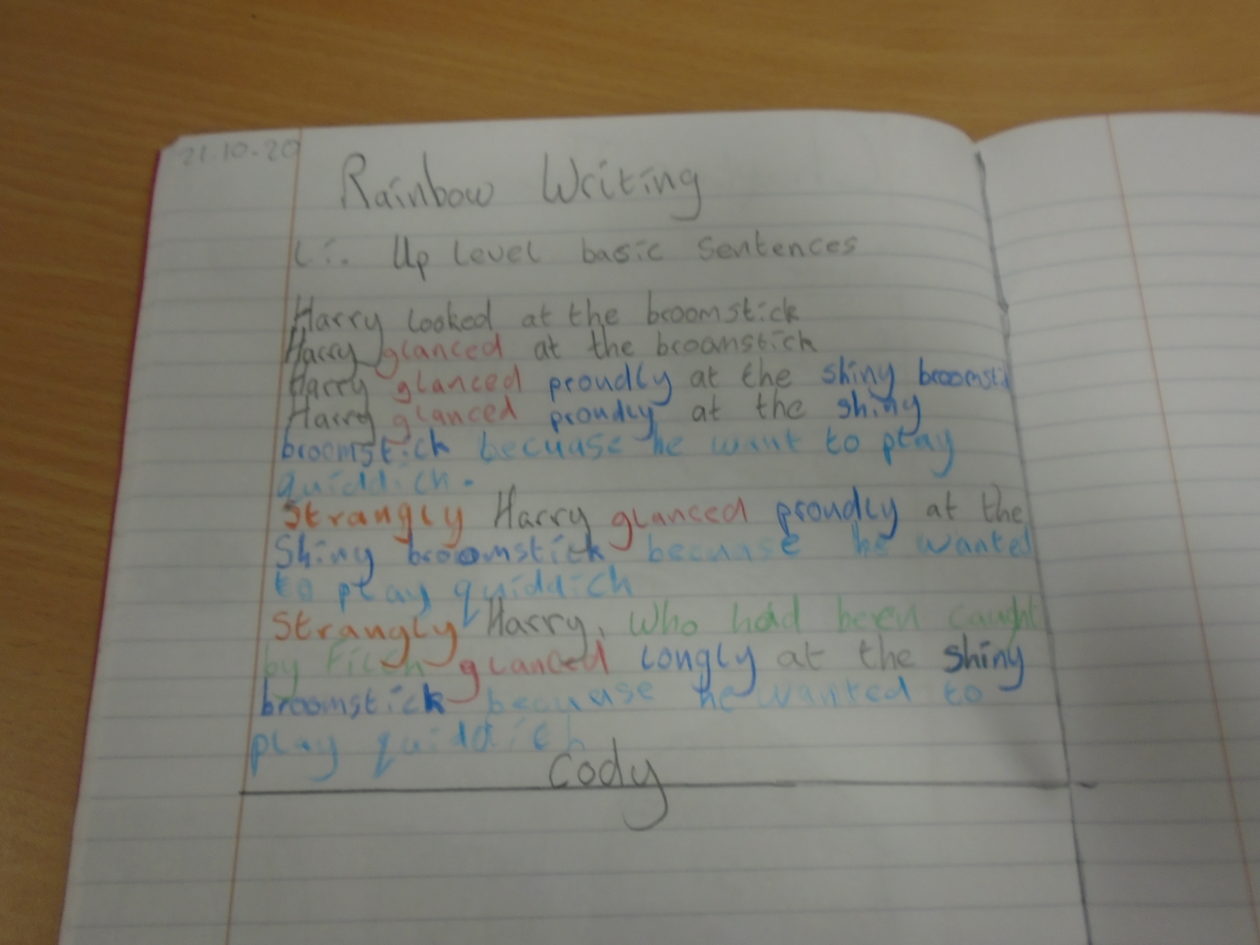 21.10.20
Rainbow Writing
Li. Up Level basic sentences
Harry looked at the broomstick
Harry glanced at the broomstick
Harry glanced proudly at the shiny broomsti
Harry glanced proudly at the shiny
broomstick becuase he want to play
quiddich.
Strangly Harry glanced proudly at the
Shiny broomstick becuase he wanted
to play quiddich
Strangly Harry, Who had been caught
by Filch glanced longly at the shiny
broomstick becuase he wanted to
play quiddich
Cody